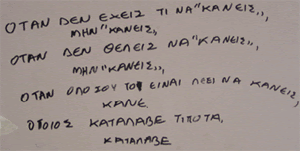 ΟΤΑΝ ΔΕΝ ΕΧΕΙΣ ΤΙ ΝΑ "ΚΑΝΕΙΣ,,,
ΜΗΝ "ΚΑΝΕΙΣ,,
ΟΤΑΝ ΔΕΝ ΘΕΛΕΙΣ ΝΑ "ΚΑΝΕΙΣ,,,
ΜΗΝ "ΚΑΝΕΙΣ,,
ΟΤΑΝ ΟΛΟ ΣΟΥ ΤΟ ΕΙΝΑΙ ΛΕΕΙ ΝΑ ΚΑΝΕΙΣ,
ΚΑΝΕ
ΟΠΟΙΟΣ ΚΑΤΑΛΑΒΕ ΤΙΠΟΤΑ,
ΚΑΤΑΛΑΒΕ